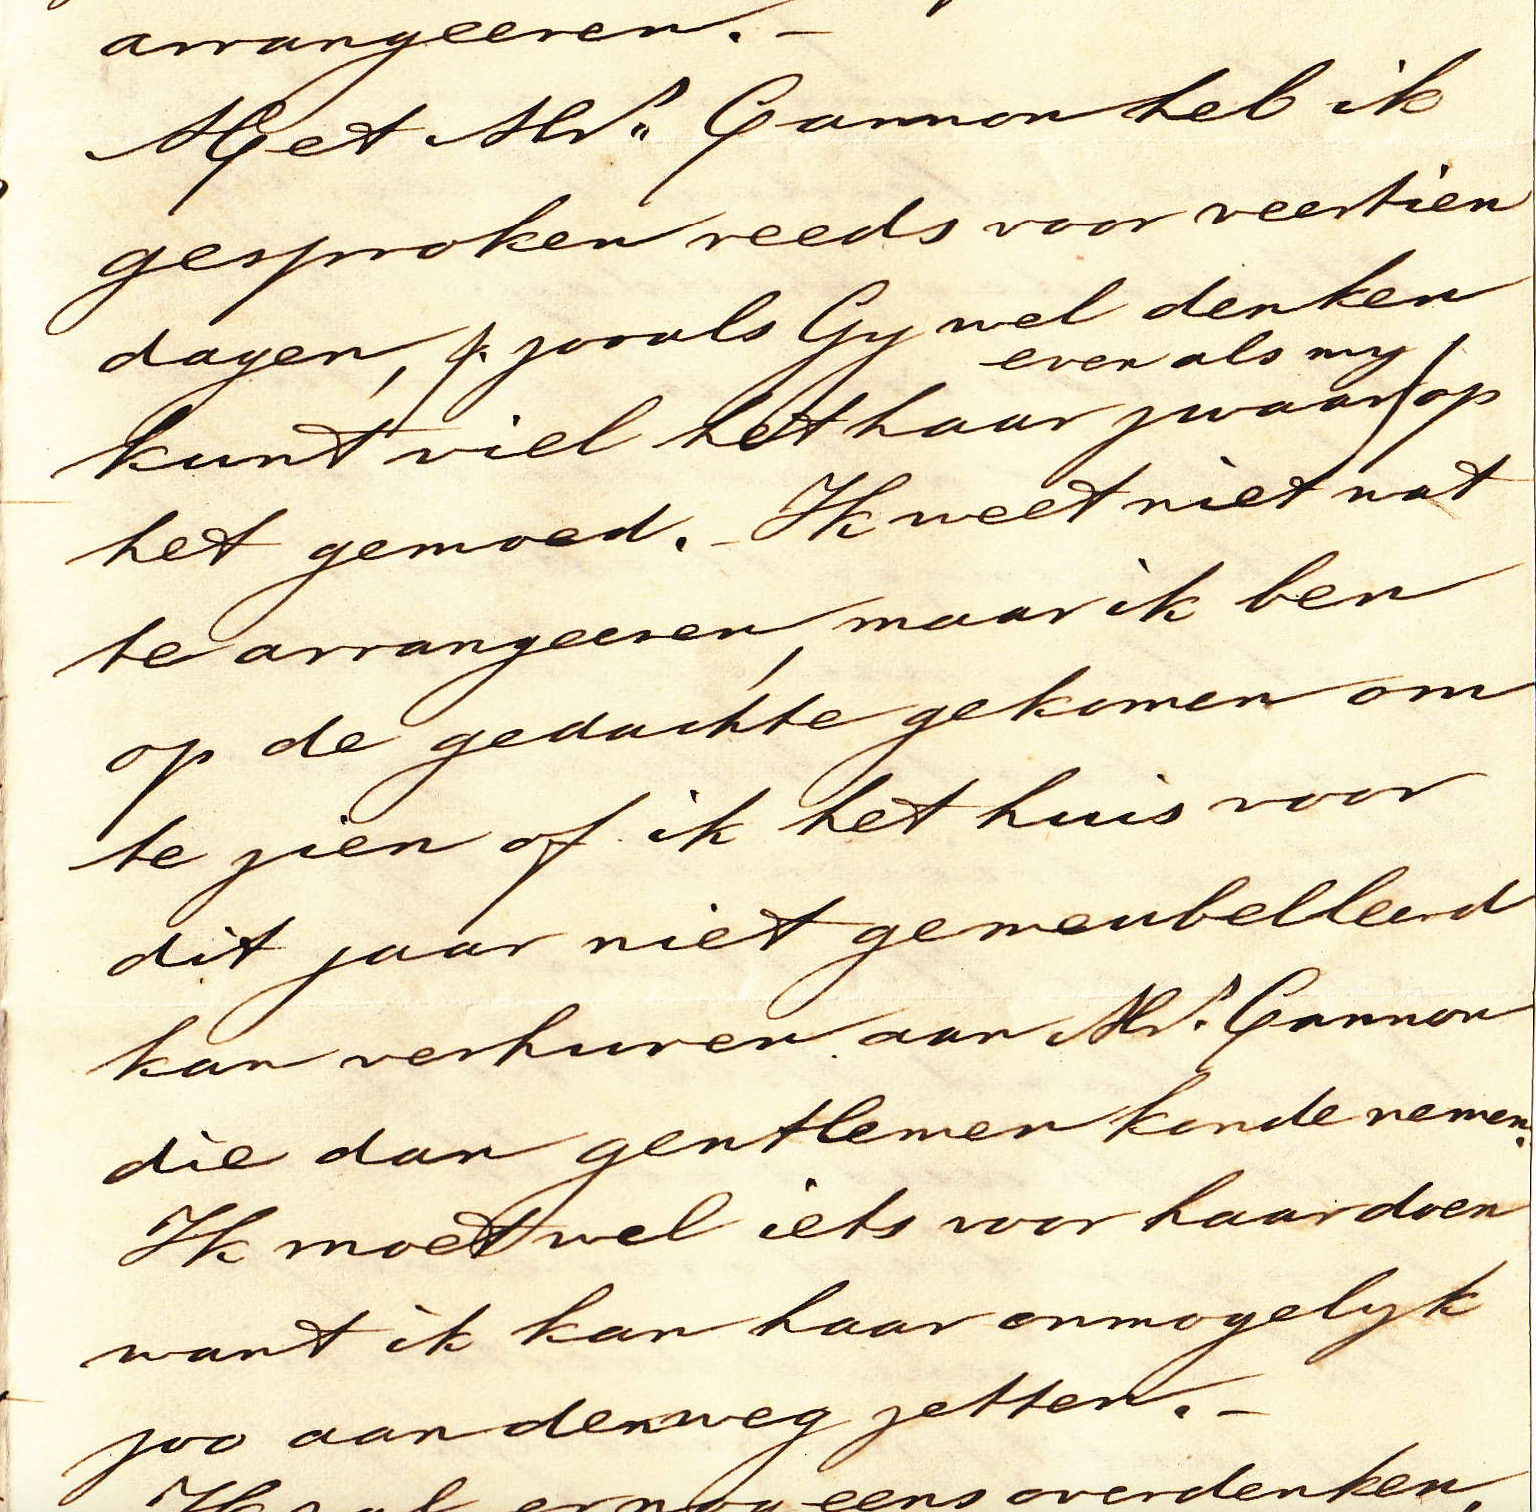 arrangeeren. –
Met Mrs. Cannon heb ik
gesproken reeds voor veertien
dagen, & zooals Gy wel denken
even als my
kunt viel het haar zwaar op
het gemoed. – Ik weet niet wat
te arrangeeren, maar ik ben
op de gedachte gekomen om
te zien of ik het huis voor
dit jaar niet gemeubelleerd
kan verhuren aan Mrs. Cannon
die dan gentlemen konde nemen.
Ik moet wel iets voor haar doen
want ik kan haar onmogelyk
zoo aan den weg zetten. –
Ik zal er nog eens overdenken,